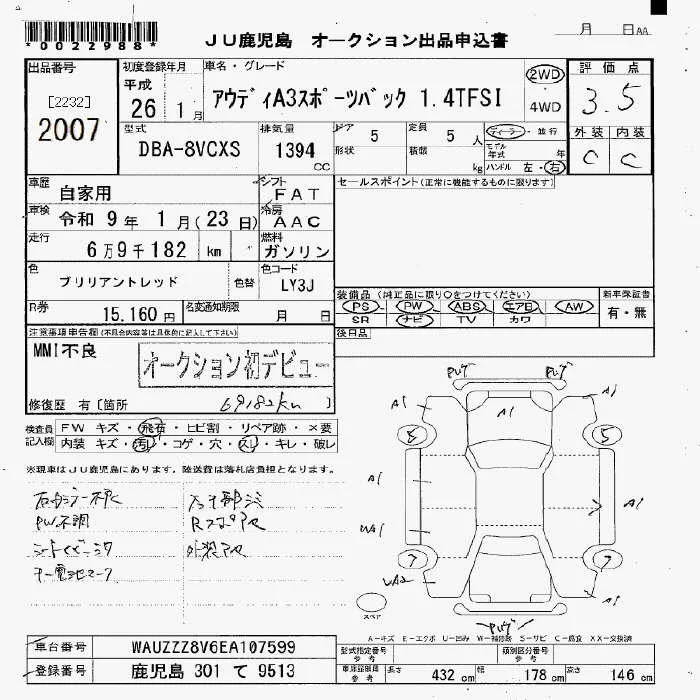 *0022988*
JU鹿児島 オークション出品申込書
月 日 AA
出品番号
[2232]
2007
初度登録年月
平成
26 1月
車名・グレード
アウディA3スポーツバック 1.4TFSI
2WD
4WD
評価点
3.5
外装 内装
C C
型式
DBA-8VCXS
排気量
1394
CC
ドア 5
形状
定員 5 人
積載 kg
ディーラー・並行
モデル年式 年
ハンドル 左・右
車歴
自家用
シフト
FAT
車検
令和 9年 1月(23日)
冷房
AAC
走行
6万9千182 km
燃料
ガソリン
色
ブリリアントレッド
色替
色コード
LY3J
R券
15,160円
名変通知期限
月 日
セールスポイント(正常に機能するものに限ります)
装備品(純正品に限り○をつけてください)
PS PW ABS エアB AW
SR ナビ TV カワ
新車保証書
有・無
後日品
注意事項申告欄(不具合内容等は具体的に記入して下さい)
MMI不良
オークション初デビュー
修復歴 有〔箇所 69182km 〕
検査員記入欄
FW キズ・飛石・ヒビ割・リペア跡・×要
内装 キズ・汚れ・コゲ・穴・スレ・キレ・破レ
※現車はJU鹿児島にあります。陸送費は落札店負担となります。
PW不調
外装
A1
A1
A1
A1
A1
A1
WA1
WA2
5
5
7
7
スペア
A-キズ E-エクボ U-凹み W-補修跡 S-サビ C-腐食 XX-交換済
車台番号
WAUZZZ8V6EA107599
登録番号
鹿児島 301 て 9513
型式指定番号
参考
類別区分番号
参考
参考
長さ 432 cm
幅 178 cm
高さ 146 cm